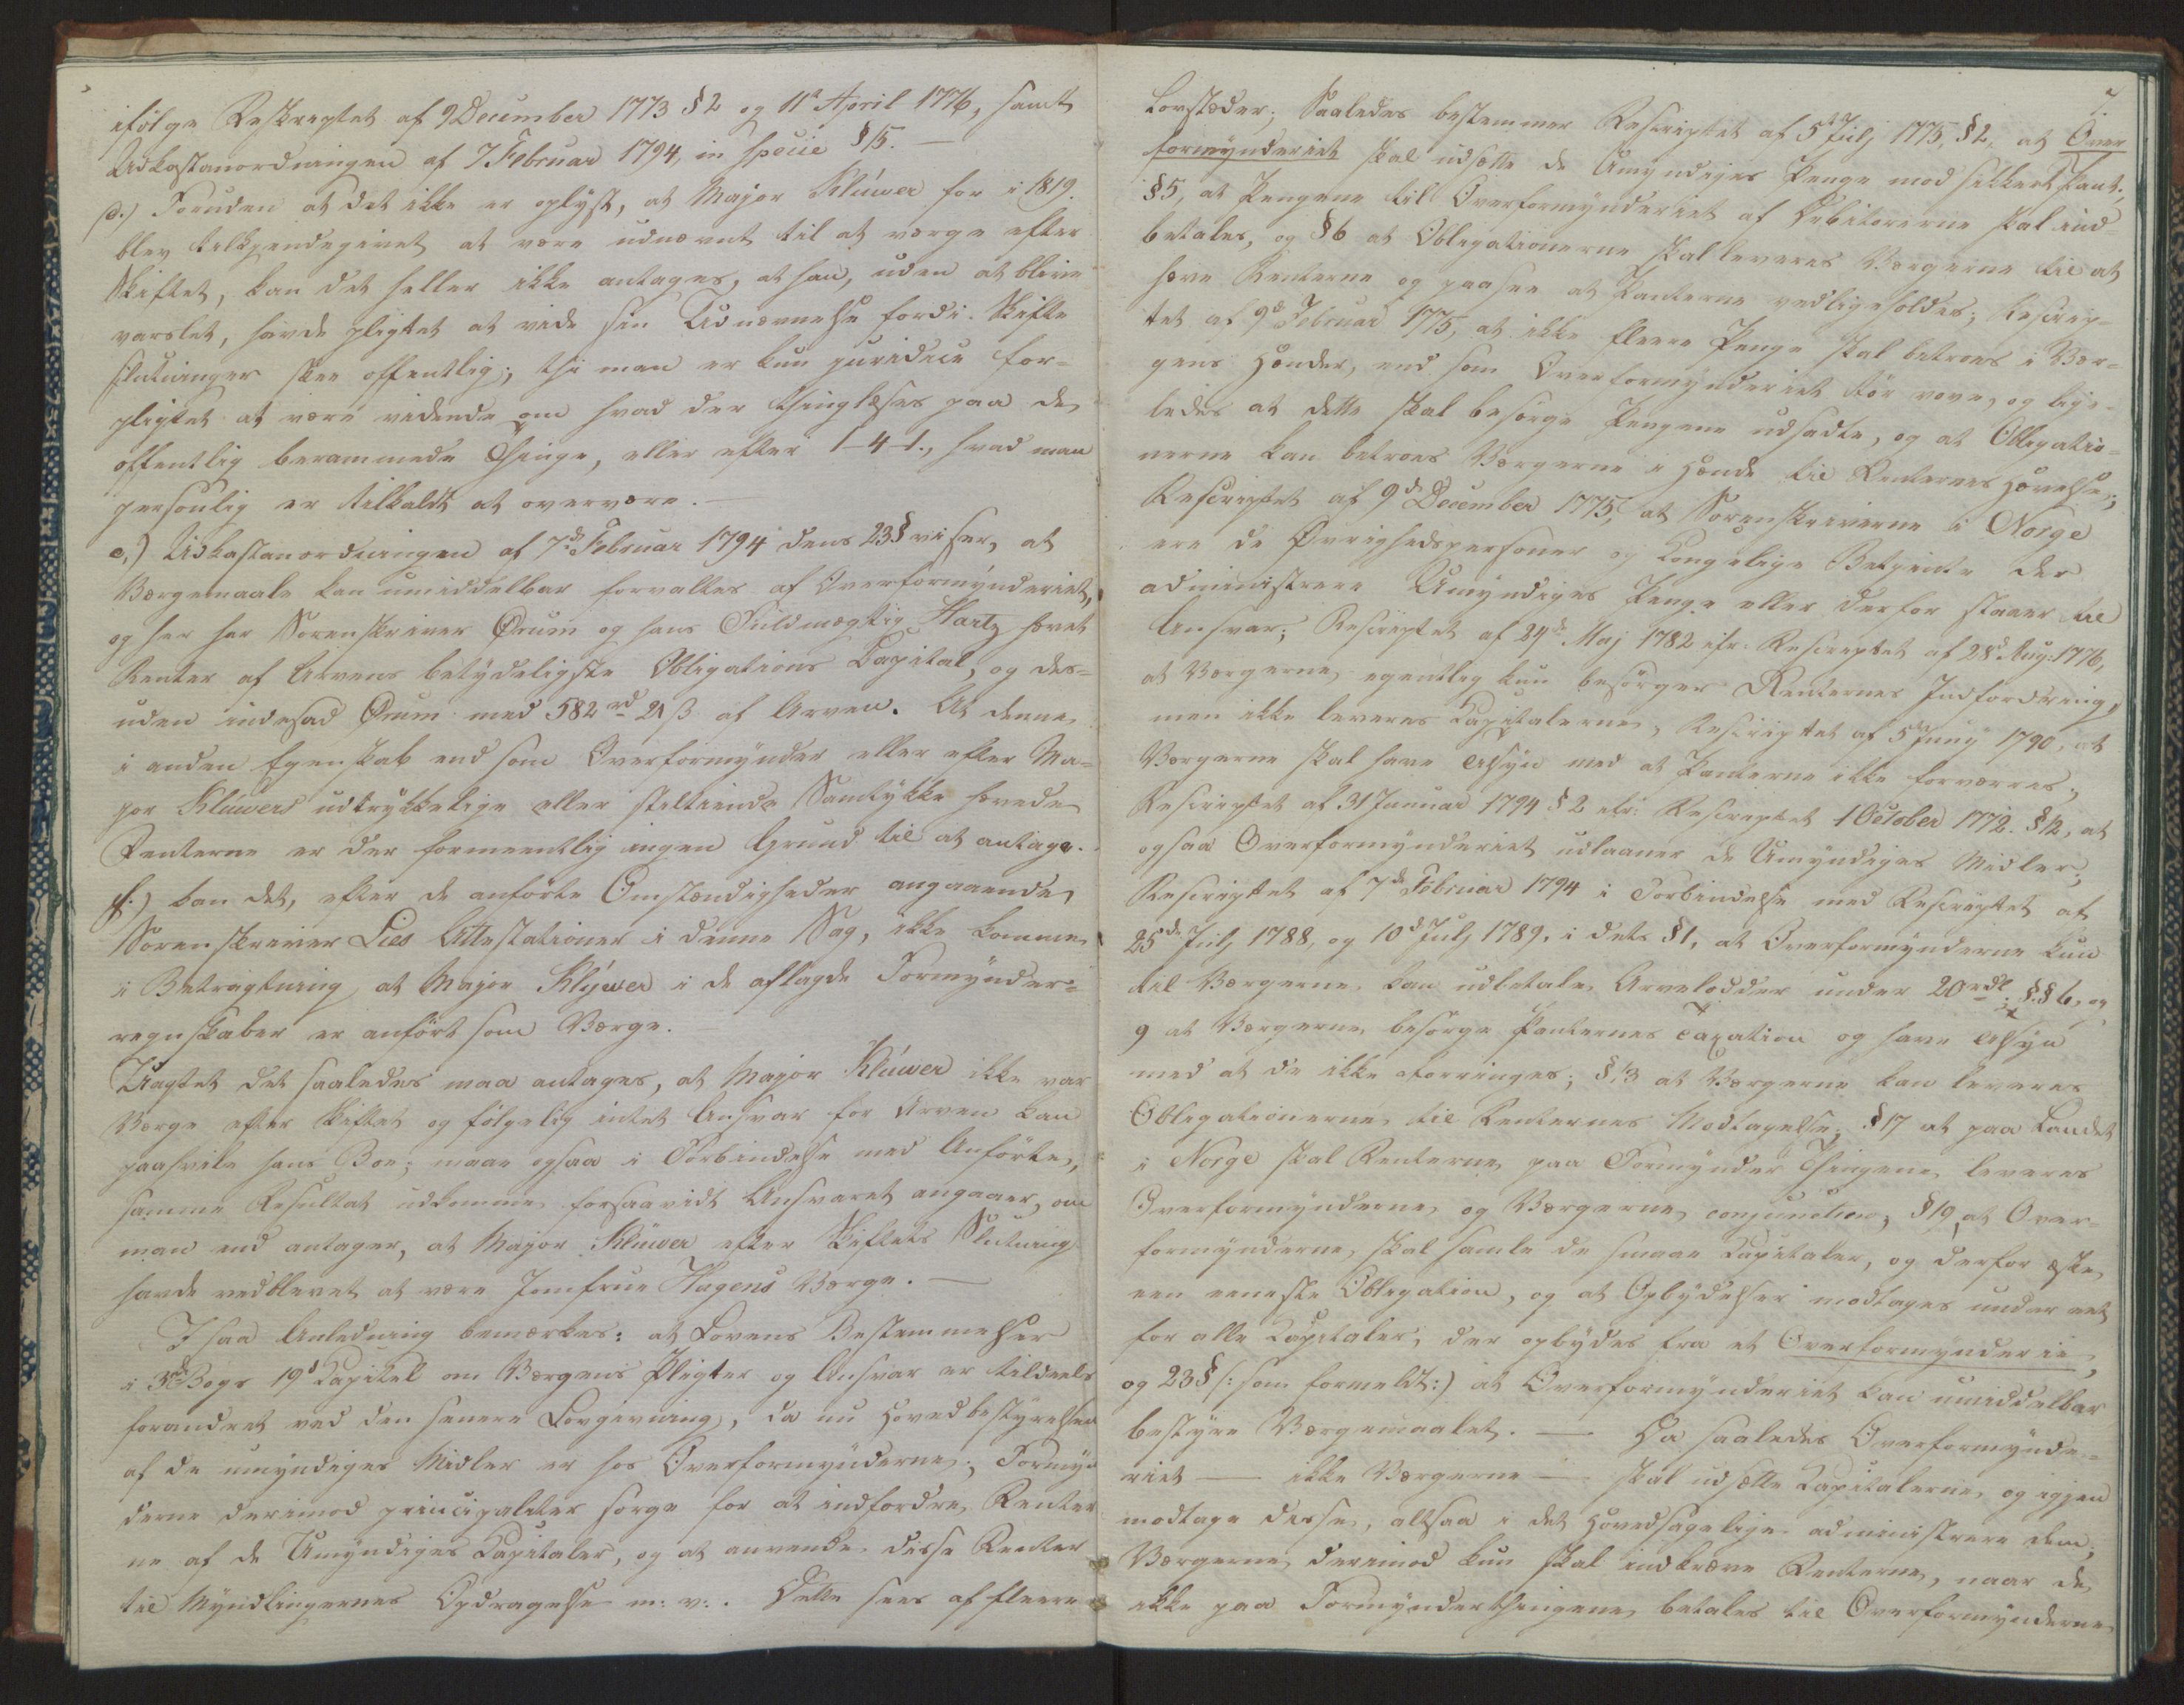 ifølge Reskriptet af 9 December 1773 § 2 og 11te April 1776, samt
Udkastanordningen af 7 Februar 1794, in specie § 15. —
d.) Foruden at det ikke er oplyst, at Major Klüwer før i 1819.
blev tilkjendegivet at være udnævnt til at værge efter
Skiftet, kan det heller ikke antages, at han, uden at blive
varslet, havde pligtet at vide sin Udnævnelse fordi Skifte
slutninger skee offentlig; thi man er kun juridice for-
pligtet at være vidende om hvad der thinglæses paa de
offentlig berammede Thinge, eller efter 1-4-1., hvad man
personlig er tilkaldt at overvære. —
e.) Udkastanordningen af 7de Februar 1794 dens 23 § viser, at
Værgemaale kan umiddelbar forvaltes af Overformynderiet,
og her har Sorenskriver Ørum og hans Fuldmægtig Hartz hævet
Renter af Arvens betydeligste Obligations Capital, og des-
uden indesad Ørum med 582 rd 21 ß af Arven. At denne
i anden Egenskab end som Overformynder eller efter Ma-
jor Klüwers udtrykkelige eller stiltiende Samtykke hævede
Renterne er der formeentlig ingen Grund til at antage.
f.) kan det, efter de anførte Omstændigheder angaaende
Sorenskriver Lies Attestationer i denne Sag, ikke komme
i Betragtning at Major Klüwer i de aflagde Formynder-
regnskaber er anført som Værge.
Uagtet det saaledes maa antages, at Major Klüwer ikke var
Værge efter Skiftet og følgelig intet Ansvar for Arven kan
paahvile hans Boe; maae ogsaa i Forbindelse med Anførte,
samme Resultat udkomme forsaavidt Ansvaret angaaer, om
man end antager, at Major Klüwer efter Skiftets Slutning
havde vedblevet at være Jomfrue Hagens Værge. —
I saa Anledning bemærkes: at Lovens Bestemmelser
i 3die Bogs 19d Capitel om Værgens Pligter og Ansvar er tildeels
forandret ved den senere Lovgivning, da nu Hovedbestyrelsen
af de umyndiges Midler er hos Overformynderne; Formyn
derne derimod principaliter sørge for at indfordre Renter
ne af de Umyndiges Capitaler, og at anvende disse Renter
til Myndlingernes Opdragelse m: v:. Dette sees af fleere
7.
Lovstæder; Saaledes bestemmer Rescriptet af 5te Julj 1775, § 2, at Over
formynderiet skal udsætte de Umyndiges Penge mod sikkert Pant;
§ 5, at Pengene til Overformynderiet af Debitorerne skal ind-
betales, og § 6 at Obligationerne skal leveres Værgerne til at
hæve Renterne og paasee at Panterne vedligeholdes; Rescrip-
tet af 9de Februar 1775, at ikke fleere Penge skal betroes i Vær-
gens Hænder, end som Overformynderiet tør vove, og lige-
ledes at dette skal besørge Pengene udsadte, og at Obligatio-
nerne kan betroes Værgerne i Hænde til Renternes Hævelse;
Rescriptet af 9de December 1775, at Sorenskriverne i Norge
ere de Øvrighedspersoner og Kongelige Betjente der
administrere Umyndiges Penge eller derfor staaer til
Ansvar; Rescriptet af 24de Maj 1782 cfr. Rescriptet af 28d Aug: 1776,
at Værgerne egentlig kun besørger Renternes Indfordring,
men ikke leveres Capitalerne, Rescriptet af 5d Junij 1790, at
Værgerne skal have Tilsyn med at Panterne ikke forværres;
Rescriptet af 31 Januar 1794 § 2 cfr: Rescriptet 1 October 1772. § 12, at
ogsaa Overformynderiet udlaaner de Umyndiges Midler;
Rescriptet af 7de Februar 1794 i Forbindelse med Rescriptet af
25de Julj 1788, og 10d Julj 1789, i dets § 1, at Overformynderne kun
til Værgerne kan udbetale Arvelodder under 20 rdl; §§ 6, og
9 at Værgerne besørge Panternes Taxation og have Tilsyn
med at de ikke forringes; § 13 at Værgerne kan leveres
Obligationerne til Renternes Modtagelse; § 17 at paa Landet
i Norge skal Renterne paa Formynder Thingene leveres
Overformynderne og Værgerne conjunctim; § 19 at Over-
formynderne skal samle de smaae Capitaler, og derfor
een eneste Obligation, og at Opbydelser modtages under eet
for alle Capitaler, der opbydes fra et Overformynderie,
og 23 § (: som formeldt:) at Overformynderiet kan umiddelbar
bestyre Værgemaalet. — Da saaledes Overformynde-
riet — ikke Værgerne — skal udsætte Capitalerne og igjen
modtage disse, altsaa i det Hovedsagelige administrere dem;
Værgerne derimod kun skal indkræve Renterne, naar de
ikke paa Formynderthingene betales til Overformynderne